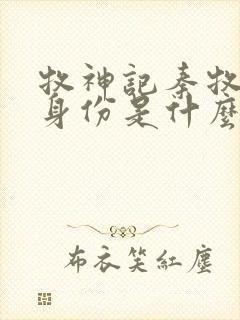 牧神記秦牧
身份是什麼
布衣笑紅塵